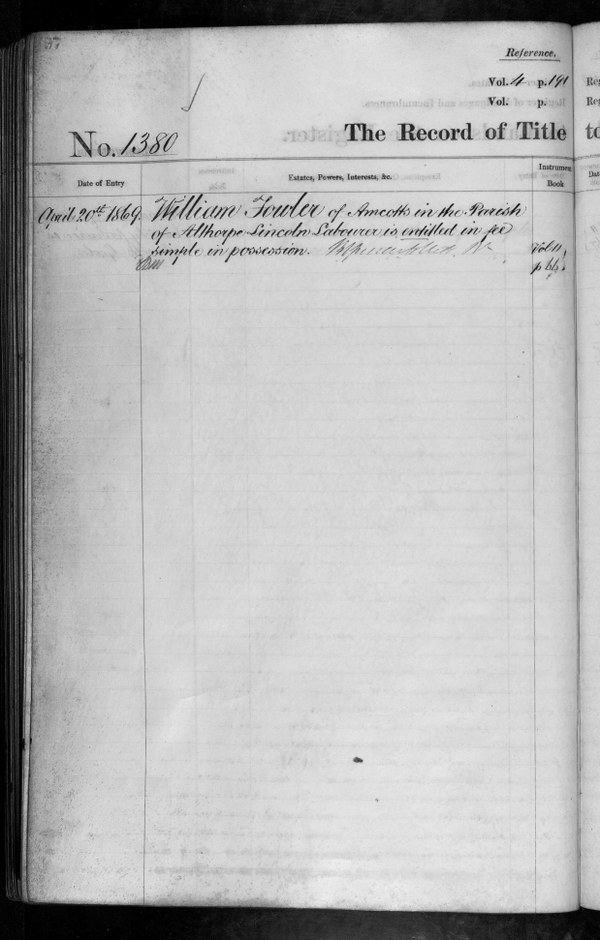 37
Reference.
Vol. 4 p. 191
Vol. p.
No. 1380
The Record of Title
Date of Entry
Estates, Powers, Interests, &c.
Instrument
Book
April 20th 1869.
William Fowler of Amcotts in the Parish
of Althorpe Lincoln Labourer is entitled in fee
simple in possession.
Vol 11,
p 66.
to
Re
Re
Dat